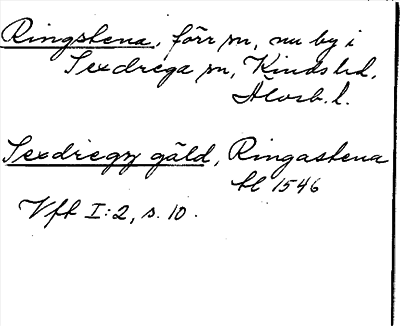 Ringstena, förr sn, nu by i
Sexdrega sn, Kinds hd,
Älvsb. l.
Sexdregx gäld, Ringastena
tl 1546
Vft I:2, s. 10.